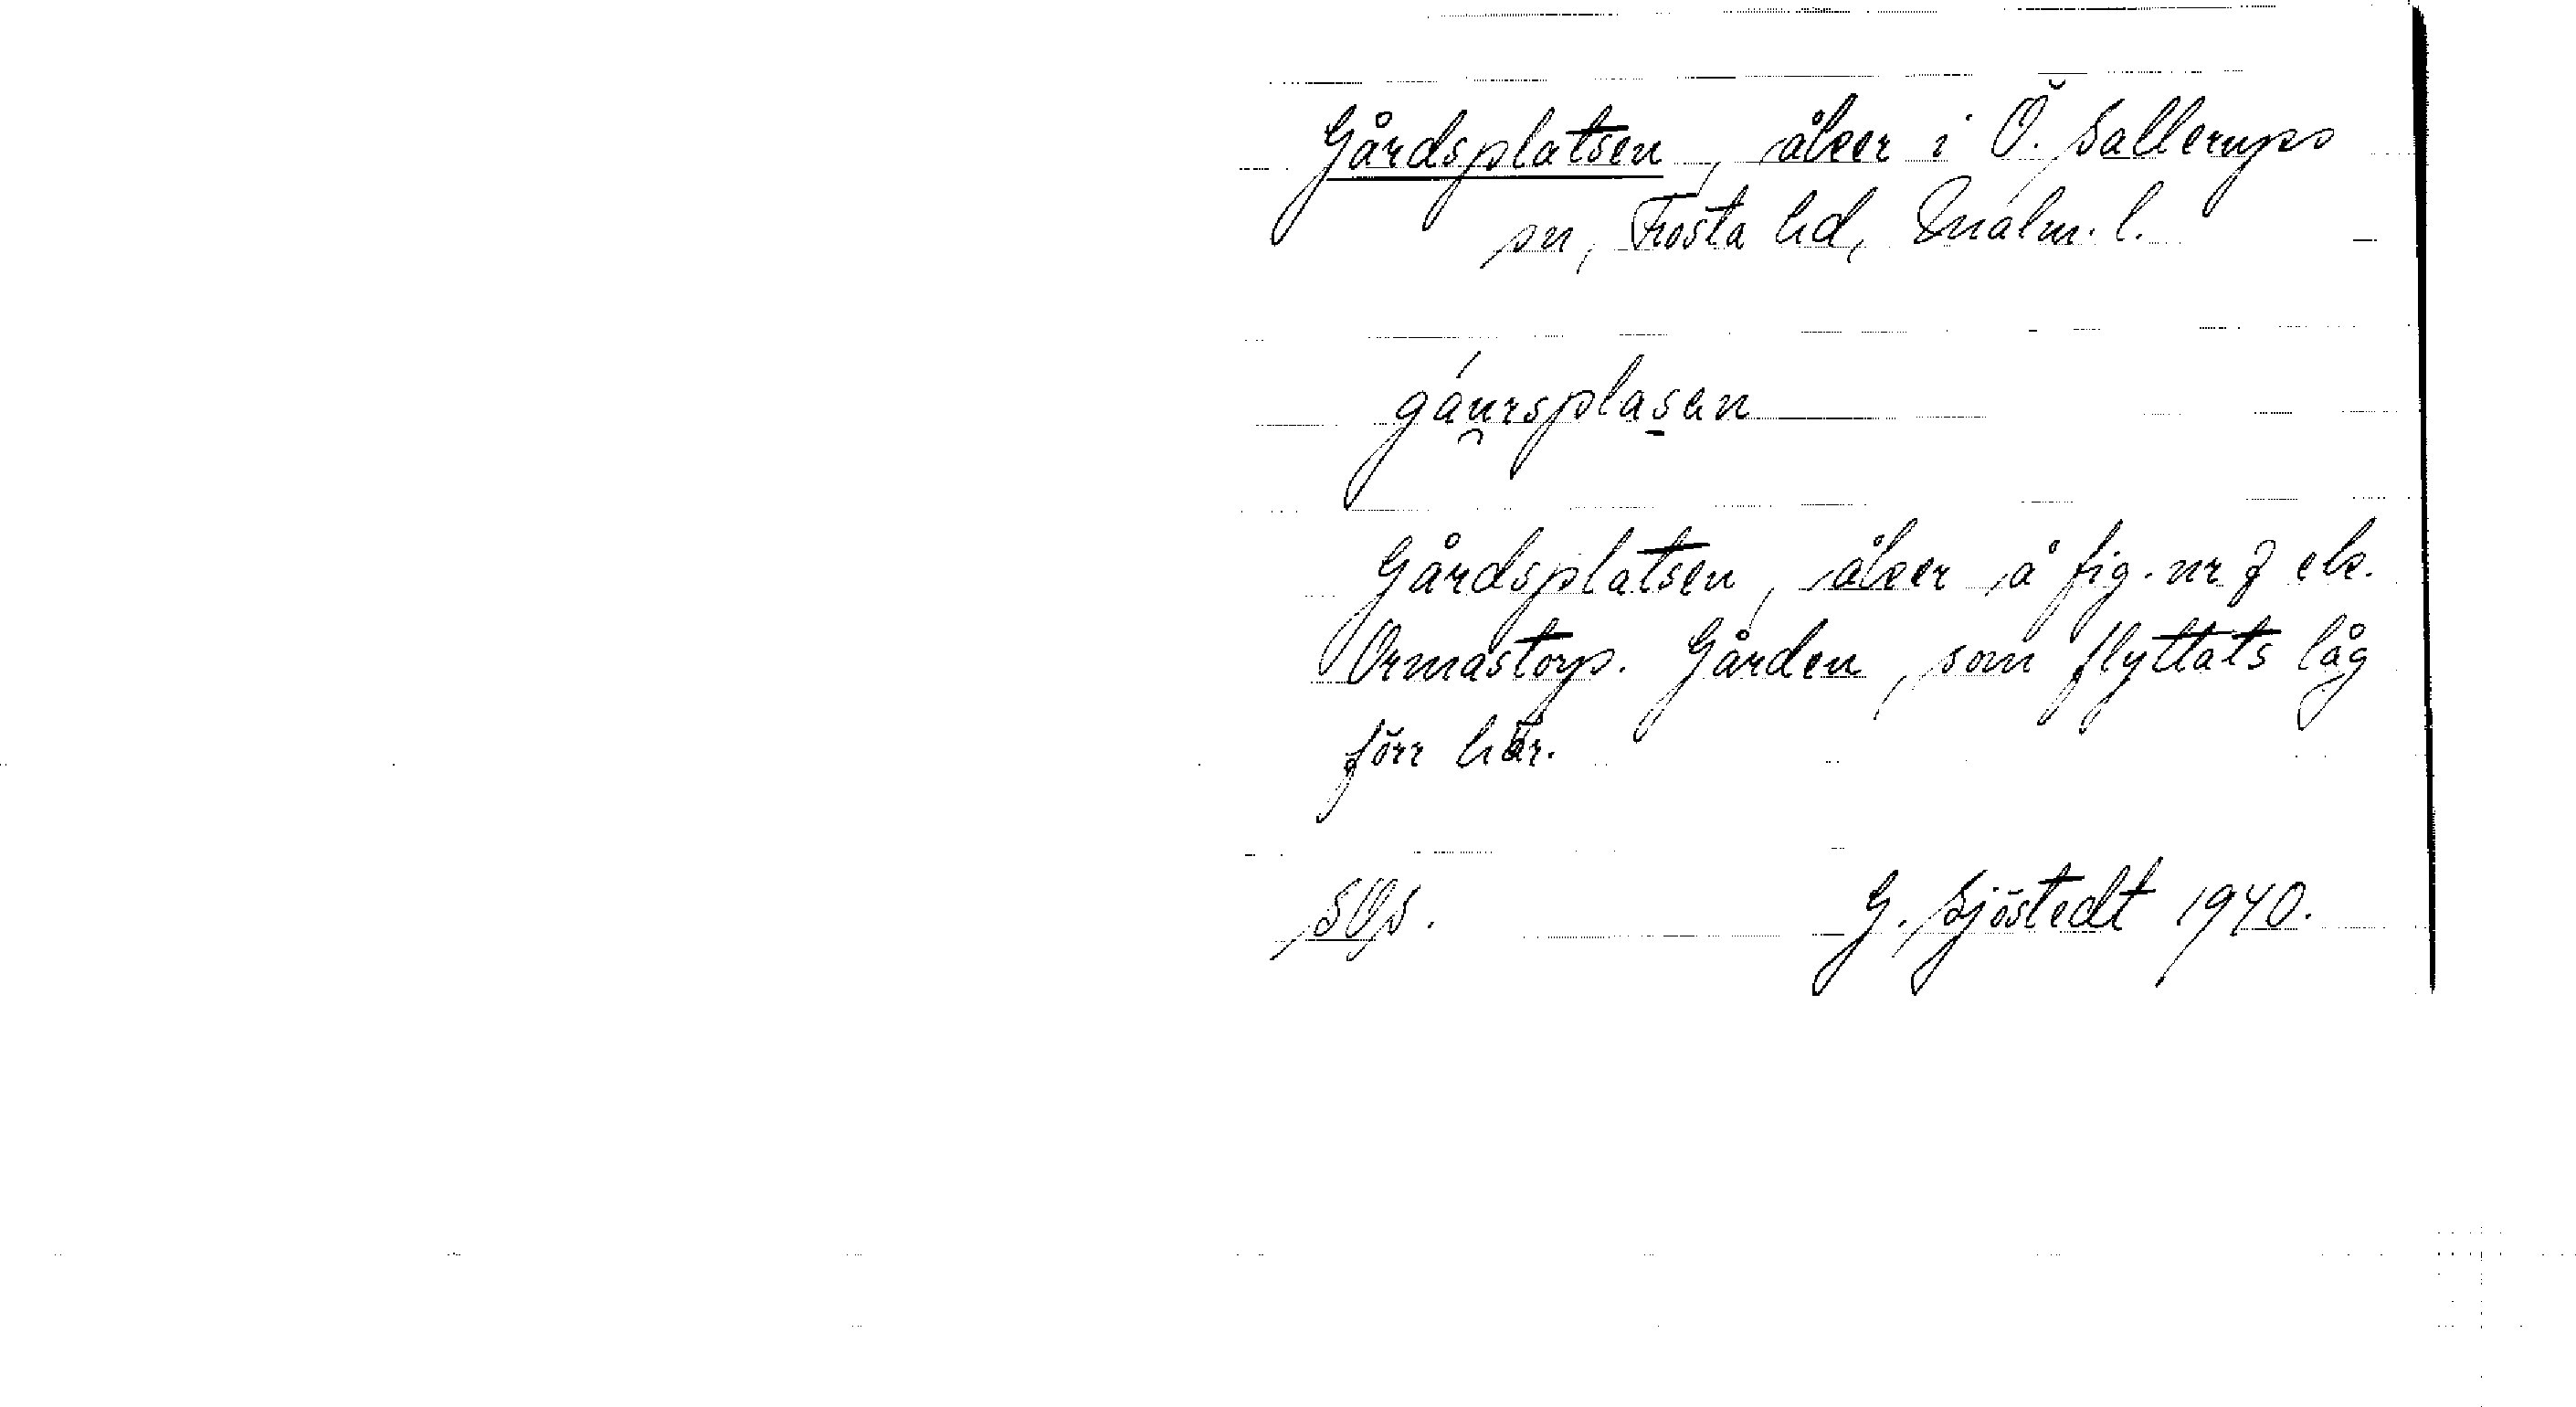 Gårdsplatsen, åker i Ö. Sallerups
sn, Frosta hd, Malm. l.
gáu̯rsplas̱an
Gårdsplatsen, åker å fig. nr 7 ek.
Ormastorp. Gården, som flyttats låg
förr här.
SOs. G. Sjöstedt 1940.